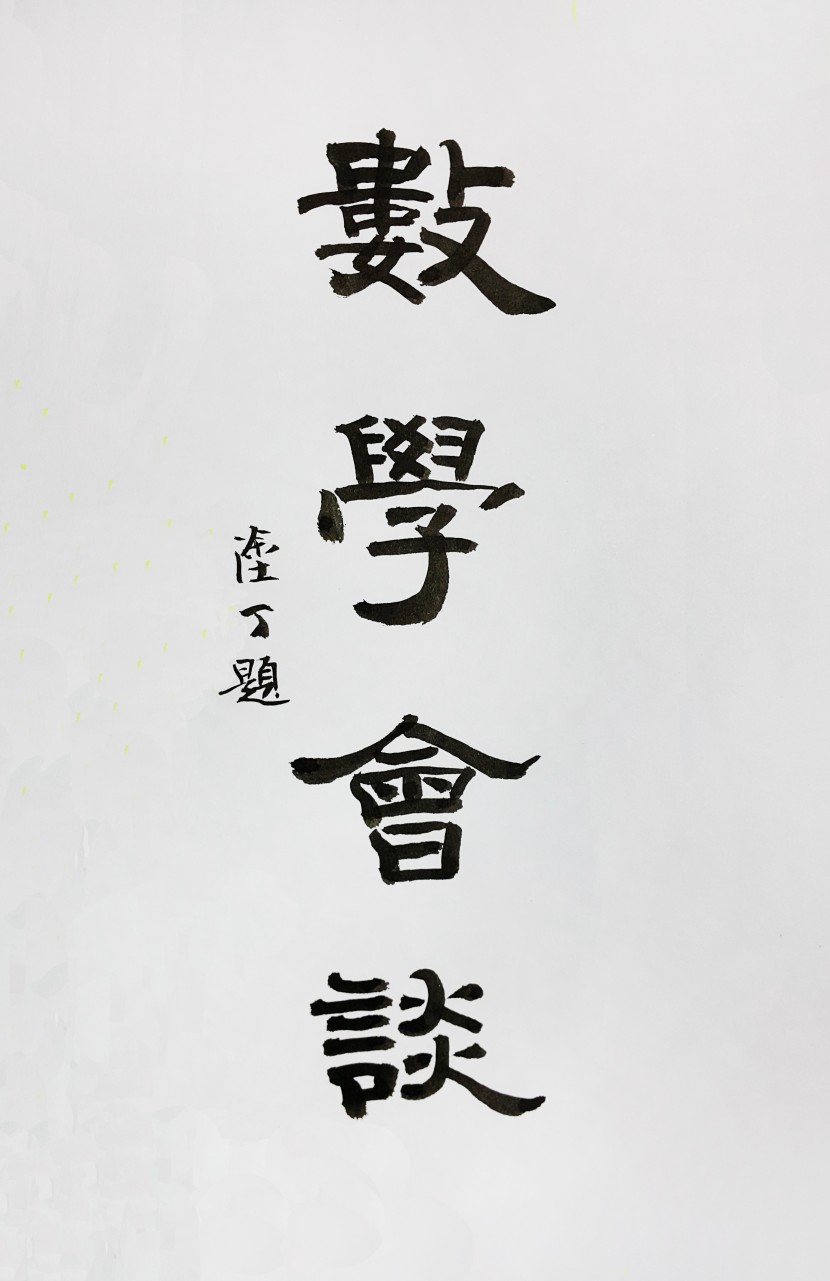 數學會談
塗丁題